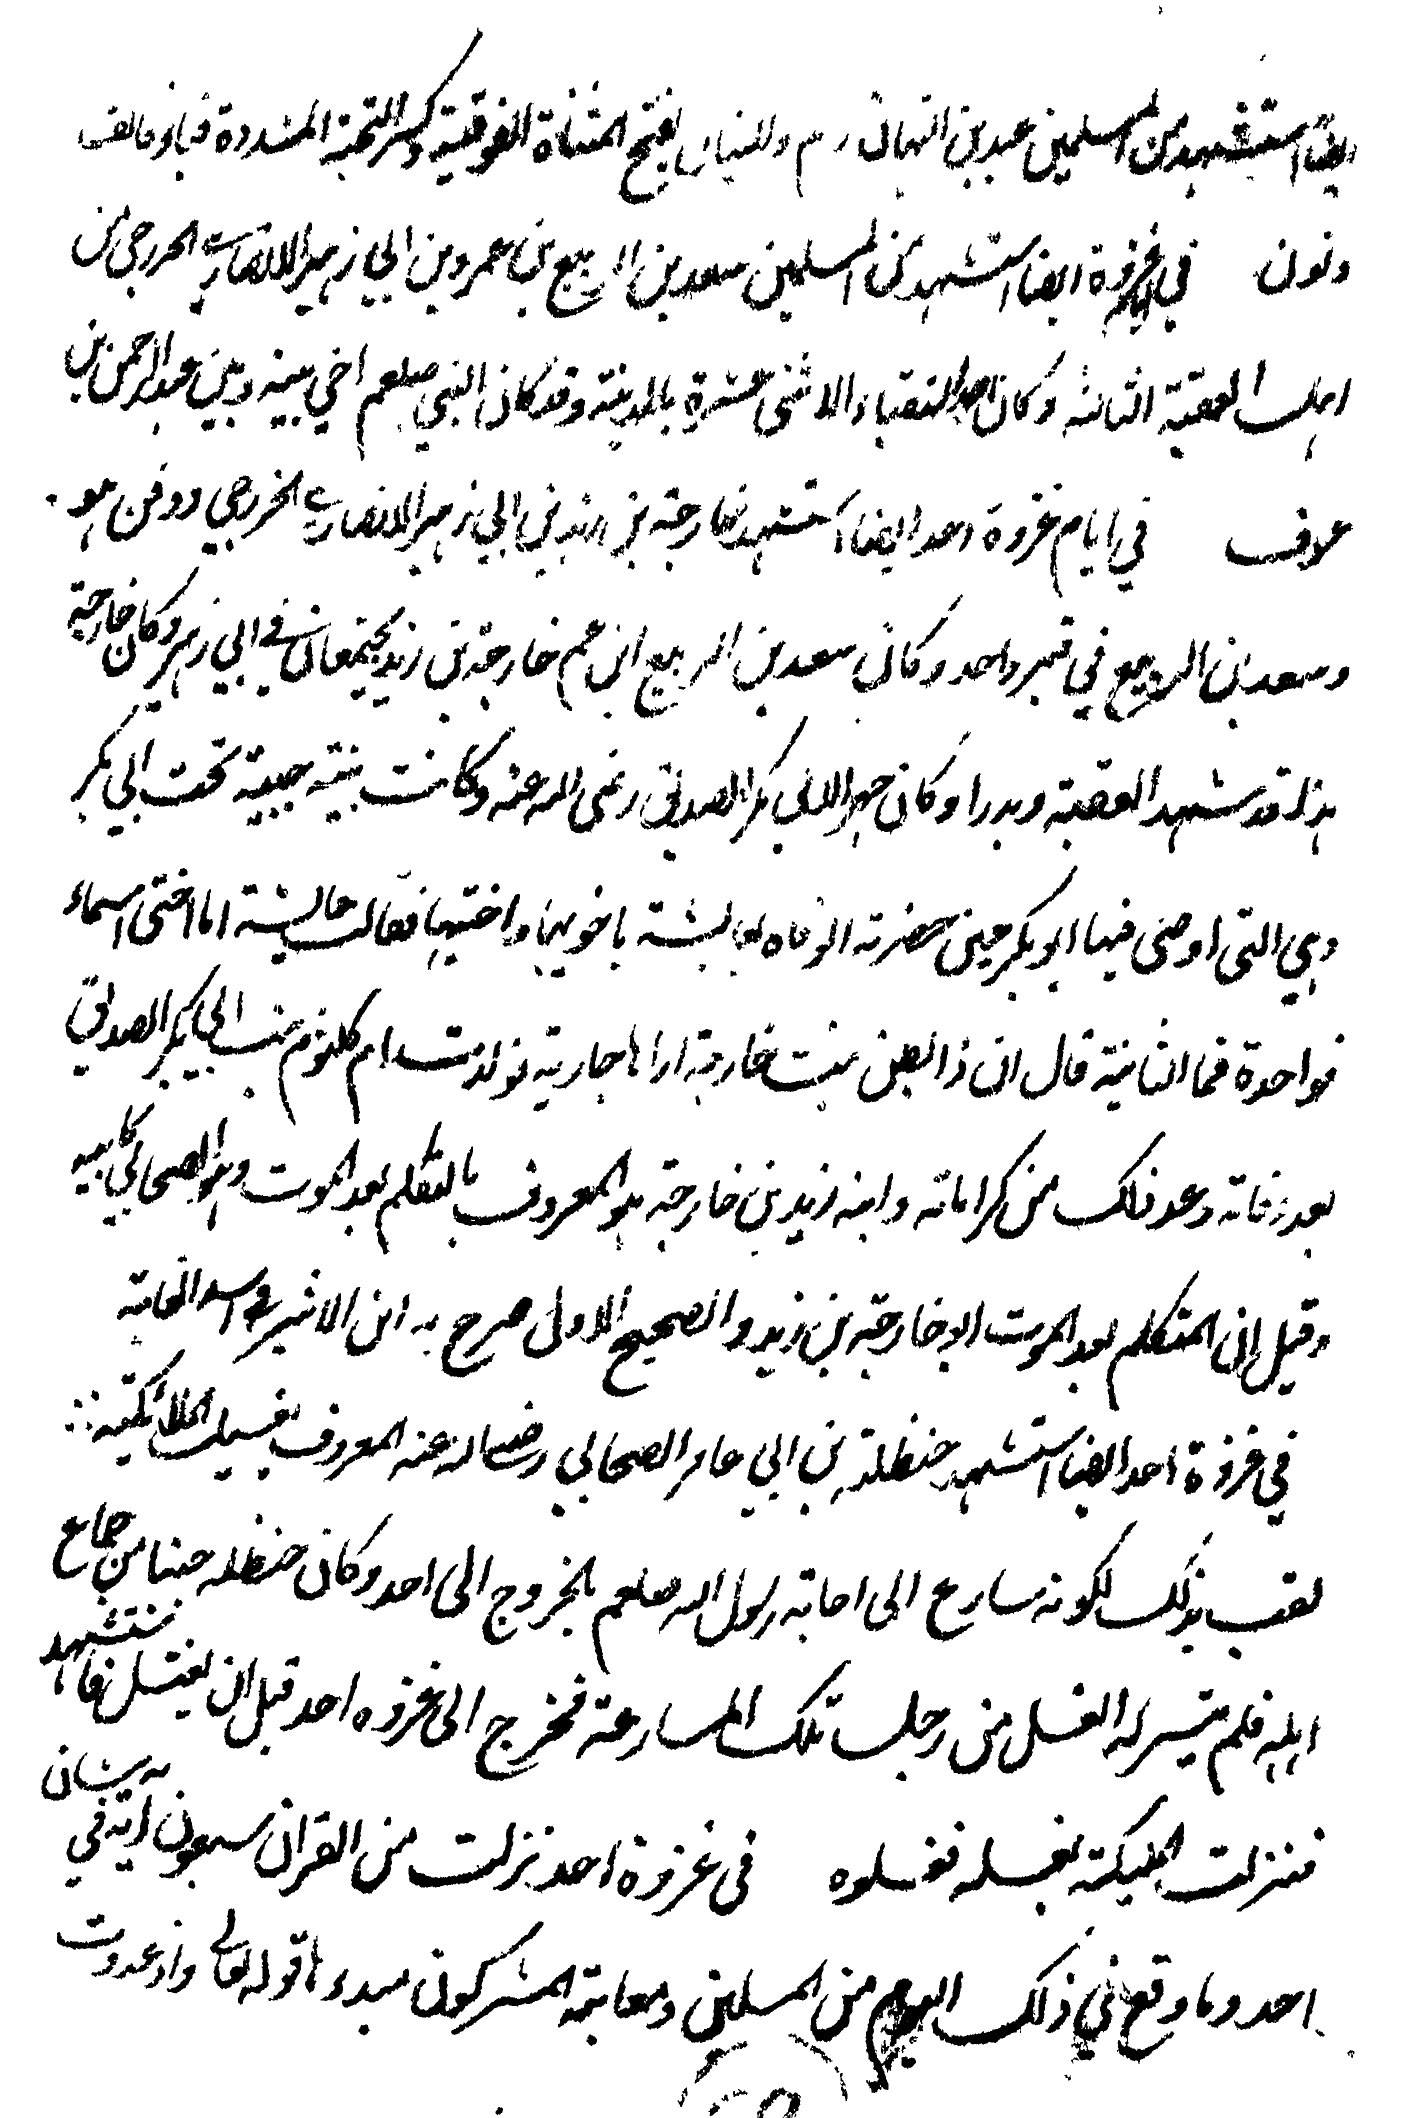 ايضا استشهد من المسلمين عبيد بن التيهان رم والتيهان بفتح المثناة الفوقية وكسر التحتية المشددة فهاء فالف
ونون في غزوة ايضا استشهد من المسلمين سعد بن الربيع بن عمرو بن ابي زهير الانصاري الخزرجي من
اهل العقبة الثانية وكان احد النقباء الاثنى عشرة بالمدينة وقد كان النبي صلعم اخي بينه وبين عبد الرحمن بن
عوف في ايام غزوة احد ايضا استشهد خارجة بن زيد بن ابي زهير الانصاري الخزرجي ودفن هو
وسعد بن الربيع في قبر واحد وكان سعد بن الربيع ابن عم خارجة بن زيد يجتمعان في ابي زهير وكان خارجة
هذا قد شهد العقبة وبدرا وكان صهرا لابي بكر الصديق رضى الله عنه وكانت بنته حبيبة تحت ابي بكر
وهي التى اوصى فيها ابو بكر حين حضرته الوفاه لعايشة باخويها واختيها فقالت عايشة اما اختى اسماء
فواحدة فما الثانية قال ان ذا بطن بنت خارجة اراها جارية فولدت ام كلثوم بنت ابي بكر الصديق
بعد وفاته وعد ذلك من كراماته وابنه زيد بن خارجة هو المعروف بالتكلم بعد الموت وهو الصحابي كابيه
وقيل ان المتكلم بعد الموت ابو خارجة بن زيد والصحيح الاول صرح به ابن الاثير في اسد الغابة
في غزوة احد ايضا استشهد حنظلة بن ابي عامر الصحابي رضى الله عنه المعروف بغسيل الملائكة
لقب بذلك لكونه سارع الى اجابة رسول الله صلعم بالخروج الى احد وكان حنظله جنبا من جماع
اهله فلم يتيسر له الغسل من اجل تلك المسارعة فخرج الى غزوه احد قبل ان يغتسل فاستشهد
فنزلت المليكة بغسله فغسلوه في غزوة احد نزلت من القران سبعون اية في شان
احد وما وقع في ذلك اليوم من المسلمين ومعاتبة المشركون مبدءها قوله تعالى واذ غدوت